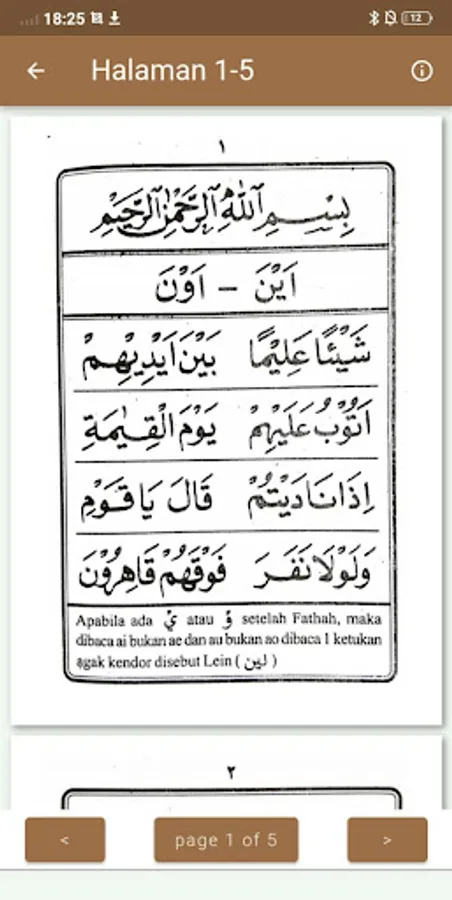 18:25
12
Halaman 1-5
١
بِسْمِ اللهِ الرَّحْمٰنِ الرَّحِيْمِ
اَيْنَ – اَوْنَ
شَيْئًا عَلِيْمًا بَيْنَ اَيْدِيْهِمْ
اَتُوْبُ عَلَيْهِمْ يَوْمَ الْقِيٰمَةِ
اِذَا نَادَيْتُمْ قَالَ يَا قَوْمِ
وَلَوْلَا نَفَرَ فَوْقَهُمْ قَاهِرُوْنَ
Apabila ada يْ atau وْ setelah Fathah, maka
dibaca ai bukan ae dan au bukan ao dibaca 1 ketukan
agak kendor disebut Lein ( لين )
٢
<
page 1 of 5
>